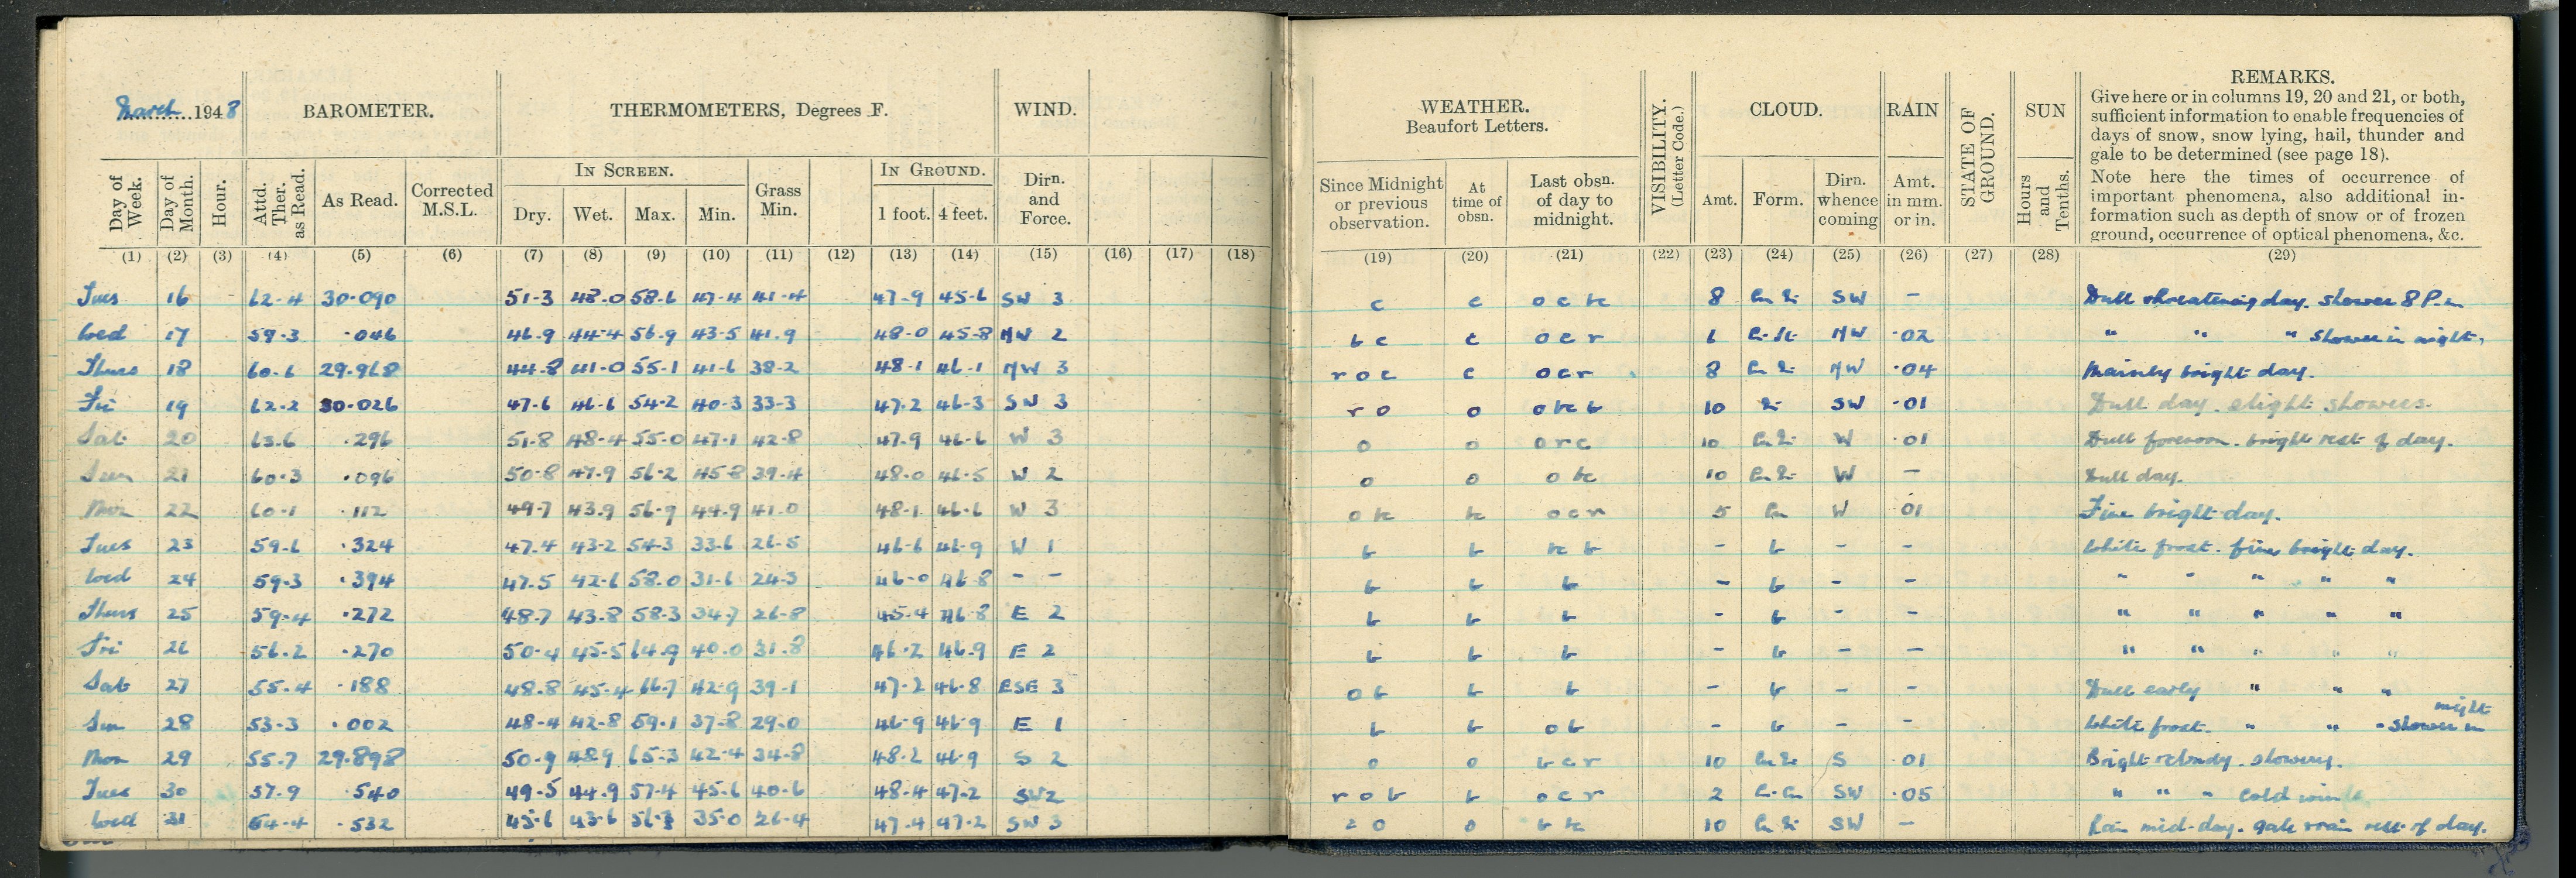 March 1948 BAROMETER. THERMOMETERS, Degrees F. WIND.
Day of Week. Day of Month. Hour. Attd. Ther. as Read. As Read. Corrected M.S.L. IN SCREEN. Dry. Wet. Max. Min. Grass Min. IN GROUND. 1 foot. 4 feet. Dirn. and Force.
(1) (2) (3) (4) (5) (6) (7) (8) (9) (10) (11) (12) (13) (14) (15) (16) (17) (18)
Tues 16 62.4 30.090 51.3 48.0 58.6 47.4 41.4 47.9 45.6 SW 3
Wed 17 59.3 .046 46.9 44.4 56.9 43.5 41.9 48.0 45.8 NW 2
Thurs 18 60.6 29.968 44.8 41.0 55.1 41.6 38.2 48.1 46.1 NW 3
Fri 19 62.2 30.026 47.6 46.6 54.2 40.3 33.3 47.2 46.3 SW 3
Sat 20 63.6 .296 51.8 48.4 55.0 47.1 42.8 47.9 46.6 W 3
Sun 21 60.3 .096 50.8 47.9 56.2 45.8 39.4 48.0 46.5 W 2
Mon 22 60.1 .112 49.7 43.9 56.9 44.9 41.0 48.1 46.6 W 3
Tues 23 59.6 .324 47.4 43.2 54.3 33.6 26.5 46.6 46.9 W 1
Wed 24 59.3 .394 47.5 42.6 58.0 31.6 24.3 46.0 46.8 - -
Thurs 25 59.4 .272 48.7 43.8 58.3 34.7 26.8 45.4 46.8 E 2
Fri 26 56.2 .270 50.4 45.5 64.9 40.0 31.8 46.2 46.9 E 2
Sat 27 55.4 .188 48.8 45.4 66.7 42.9 39.1 47.2 46.8 ESE 3
Sun 28 53.3 .002 48.4 42.8 59.1 37.8 29.0 46.9 46.9 E 1
Mon 29 55.7 29.898 50.9 48.9 65.3 42.4 34.8 48.2 46.9 S 2
Tues 30 57.9 .540 49.5 44.9 57.4 45.6 40.6 48.4 47.2 SW 2
Wed 31 54.4 .532 45.6 43.6 56.3 35.0 26.4 47.4 47.2 SW 3
WEATHER. Beaufort Letters. VISIBILITY. (Letter Code.) CLOUD. RAIN STATE OF GROUND. SUN REMARKS.
Give here or in columns 19, 20 and 21, or both,
sufficient information to enable frequencies of
days of snow, snow lying, hail, thunder and
gale to be determined (see page 18).
Note here the times of occurrence of
important phenomena, also additional in-
formation such as depth of snow or of frozen
ground, occurrence of optical phenomena, &c.
Since Midnight or previous observation. At time of obsn. Last obsn. of day to midnight. Amt. Form. Dirn. whence coming Amt. in mm. or in. Hours and Tenths.
(19) (20) (21) (22) (23) (24) (25) (26) (27) (28) (29)
c c o c bc 8 SW - Dull threatening day. shower 8 P.m
b c c o c r 6 NW .02 " " " Shower in night.
r o c c o c r 8 NW .04 Mainly bright day.
r o o o bc b 10 SW .01 Dull day. slight showers.
o o o r c 10 W .01 Dull forenoon. bright rest of day.
o o o bc 10 W - Dull day.
o bc bc o c r 5 Cu W .01 Fine bright day.
b b bc b - b - - White frost. fine bright day.
b b b - b - - " " " " "
b b b - b - - " " " " "
b b b - b - - " " " " "
o b b b - b - - Dull early " " "
b b o b - b - - White frost. " " " Shower in night
o o b c r 10 S .01 Bright & cloudy. showery.
r o b b o c r 2 SW .05 " " " Cold wind
o o b bc 10 SW - Rain mid-day. gale & rain rest of day.